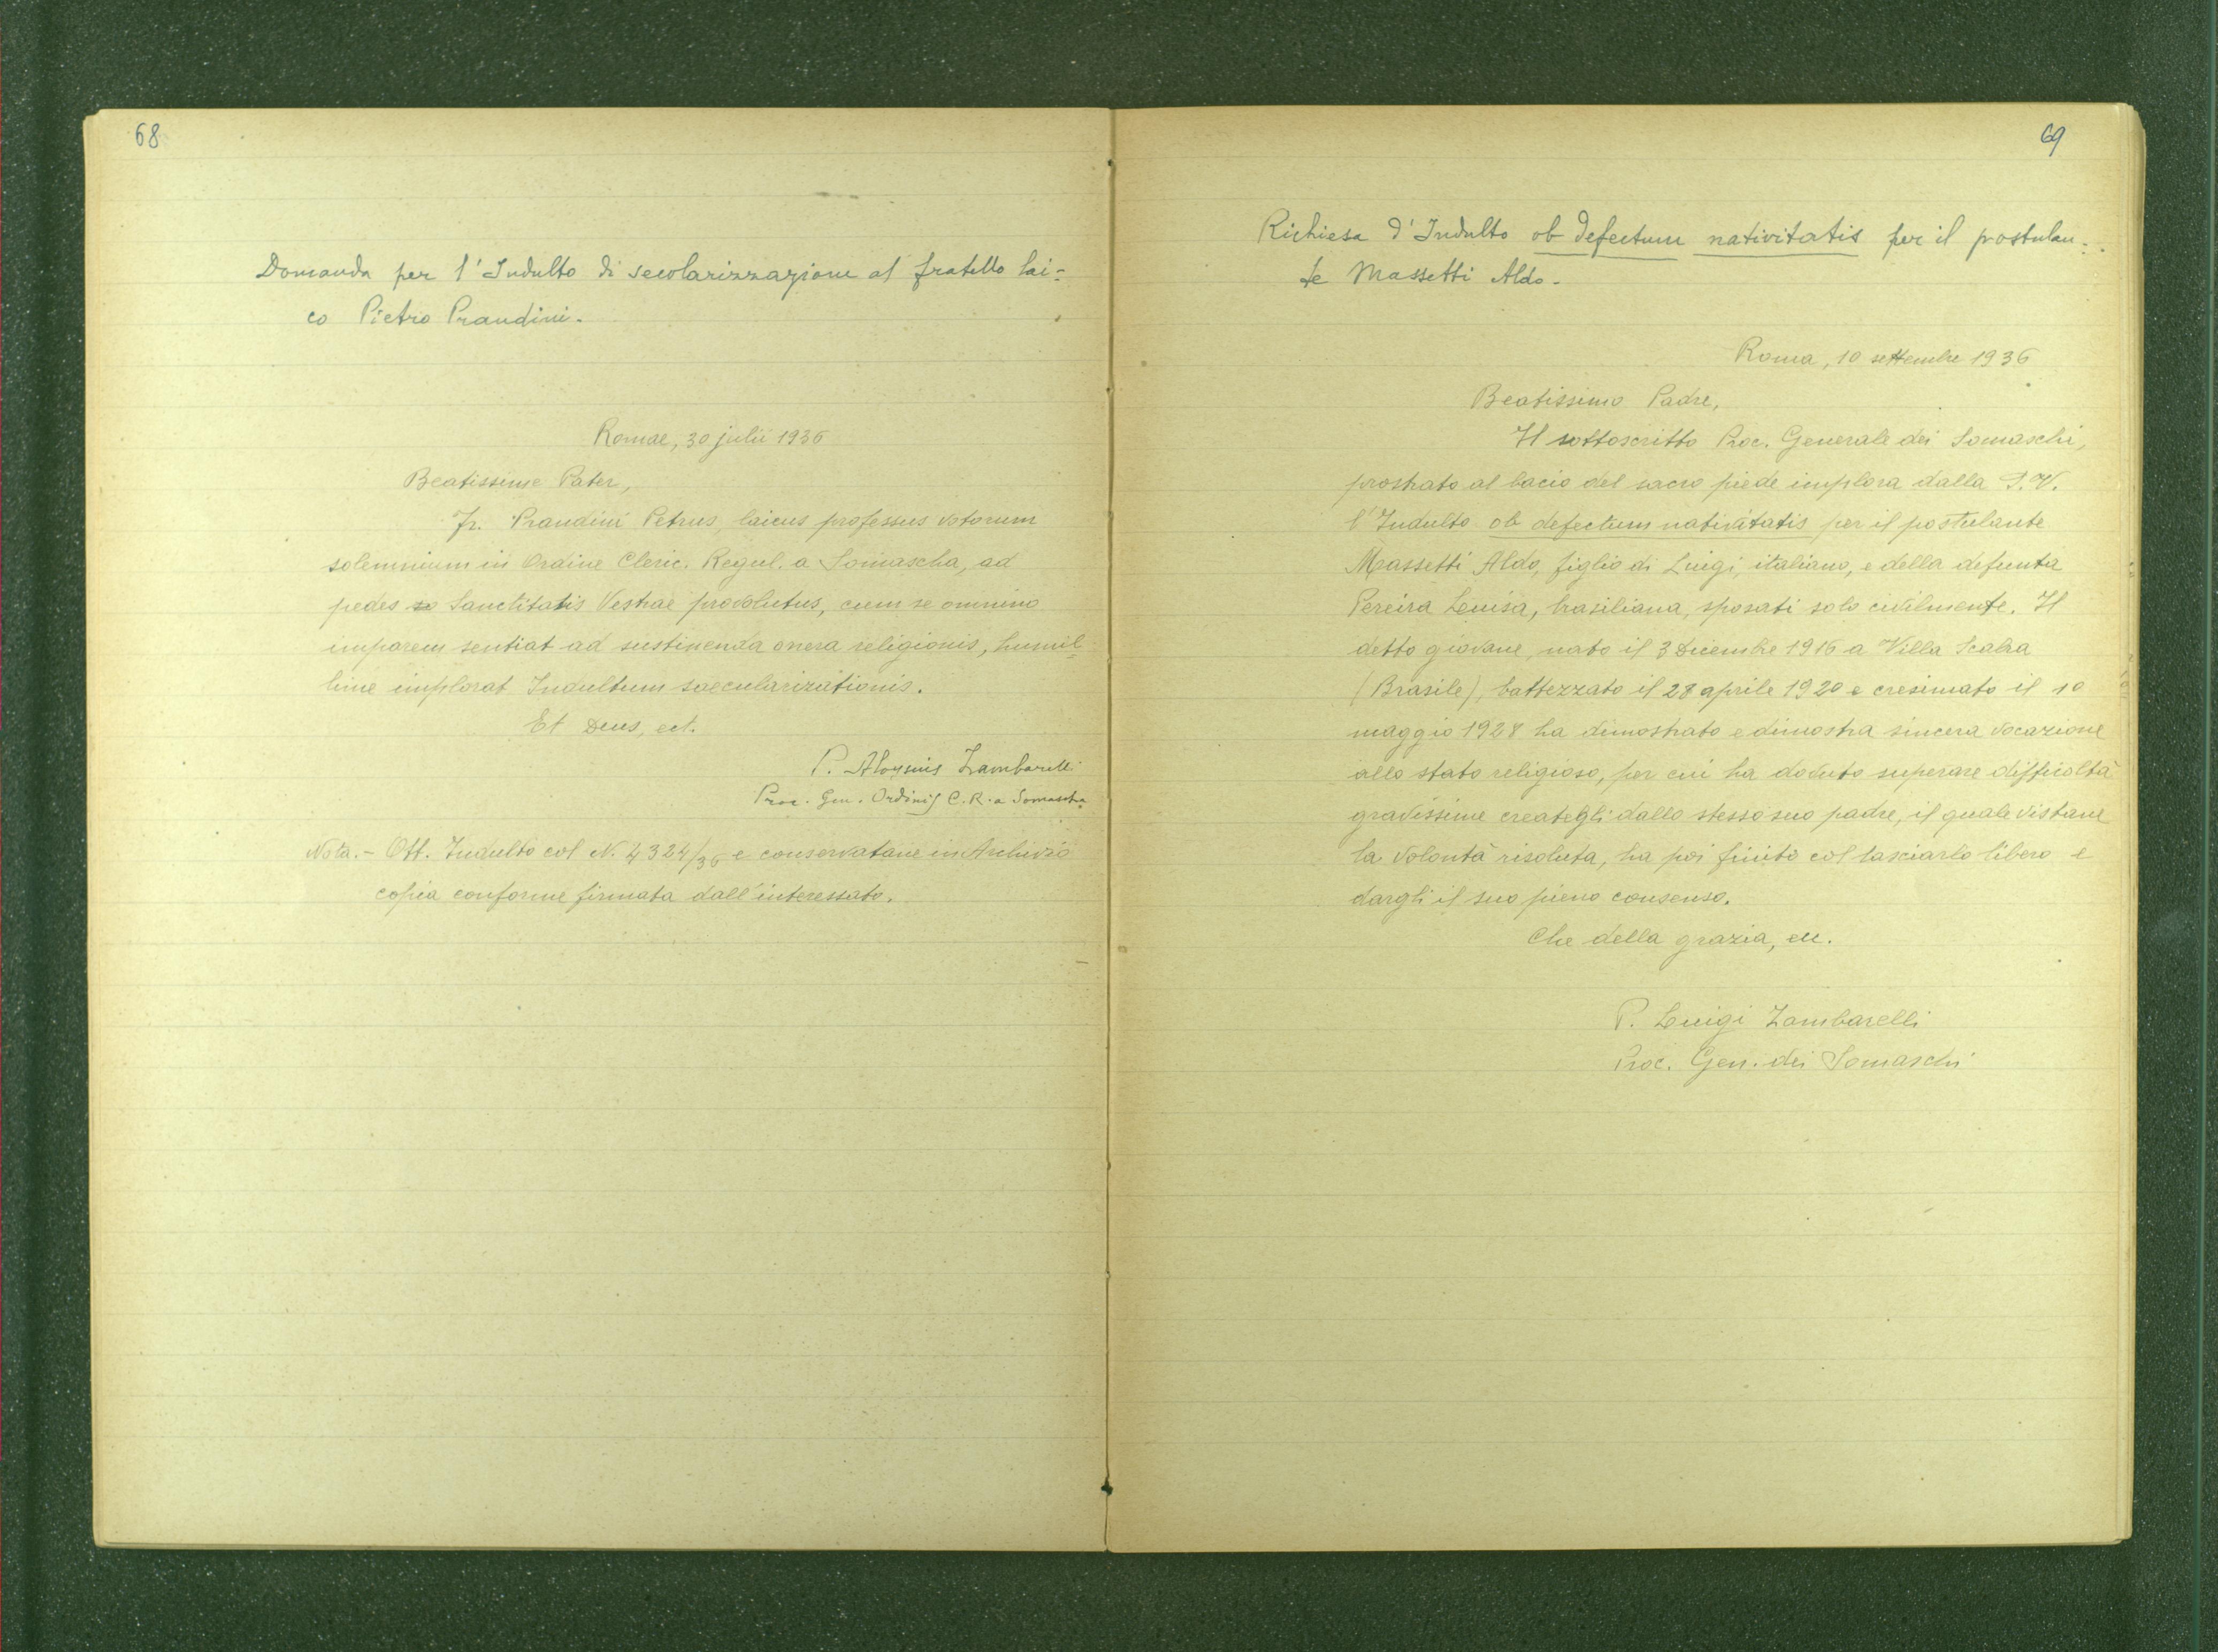 68
Domanda per l'Indulto di secolarizzazione al fratello lai=
co Pietro Prandini.
Romae, 30 julii 1936
Beatissime Pater,
Fr. Prandini Petrus, laicus professus votorum
solemnium in Ordine Cleric. Regul. a Somascha, ad
pedes Sanctitatis Vestrae provolutus, cum se omnino
imparem sentiat ad sustinenda onera religionis, humil=
lime implorat Indultum saecularizationis.
Et Deus, ect.
P. Aloysius Zambarelli
Proc. Gen. Ordinis C. R. a Somascha
Nota. - Ott. Indulto col N. 4324/36 e conservatane in Archivio
copia conforme firmata dall'interessato.
69
Richiesa d'Indulto ob defectum nativitatis per il postulan=
te Massetti Aldo.
Roma, 10 settembre 1936
Beatissimo Padre,
Il sottoscritto Proc. Generale dei Somaschi,
prostrato al bacio del sacro piede implora dalla S. V.
l'Indulto ob defectum nativitatis per il postulante
Massetti Aldo, figlio di Luigi, italiano, e della defunta
Pereira Louisa, brasiliana, sposati solo civilmente. Il
detto giovane, nato il 3 Dicembre 1916 a Villa
(Brasile), battezzato il 28 aprile 1920 e cresimato il 10
maggio 1928 ha dimostrato e dimostra sincera vocazione
allo stato religioso, per cui ha dovuto superare difficoltà
gravissime creategli dallo stesso suo padre, il quale vistane
la volontà risoluta, ha poi finito col lasciarlo libero e
dargli il suo pieno consenso.
Che della grazia, ecc.
P. Luigi Zambarelli
Proc. Gen. dei Somaschi